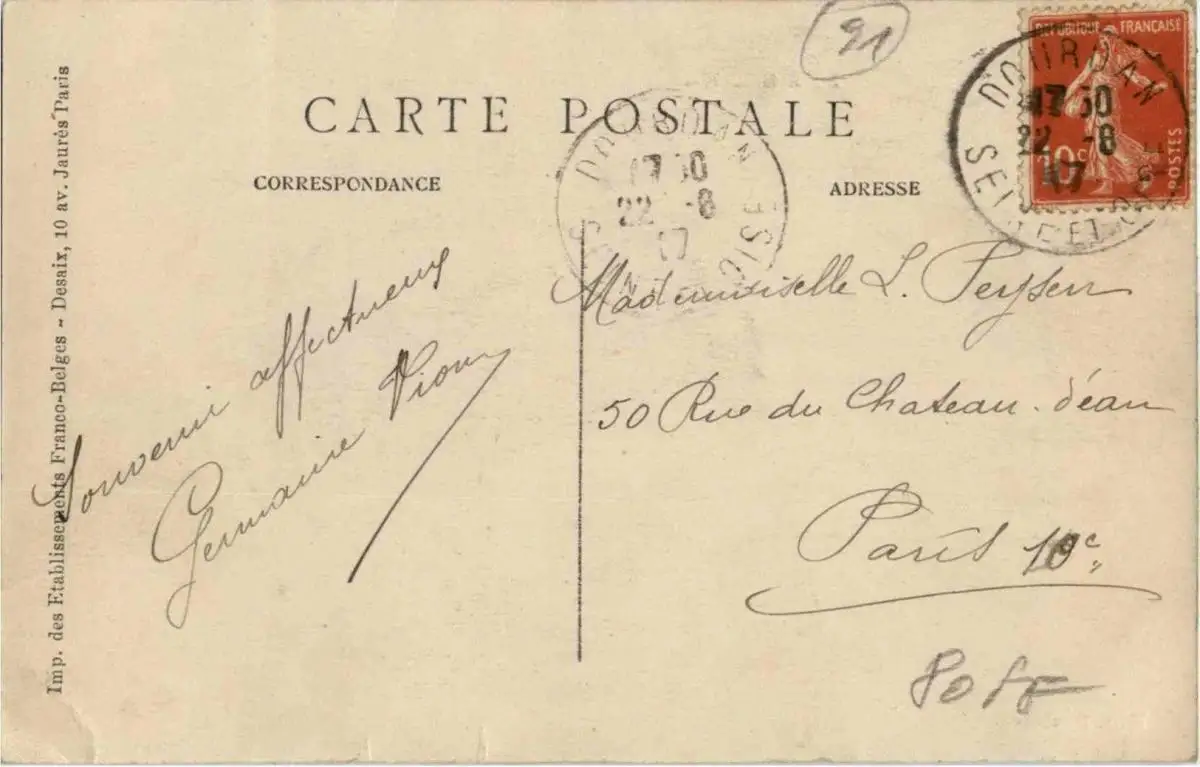 91
REPUBLIQUE FRANCAISE
10c
POSTES
DOURDAN
17 50
22 -8
17
SEINE ET OISE
CARTE POSTALE
DOURDAN
17 50
22 -8
17
OISE
CORRESPONDANCE
ADRESSE
Imp. des Etablissements Franco-Belges - Desaix, 10 av. Jaurès Paris
Souvenir affectueux
Germaine
Mademoiselle L.
50 Rue du Chateau. d'éau
Paris 10e
80 FF